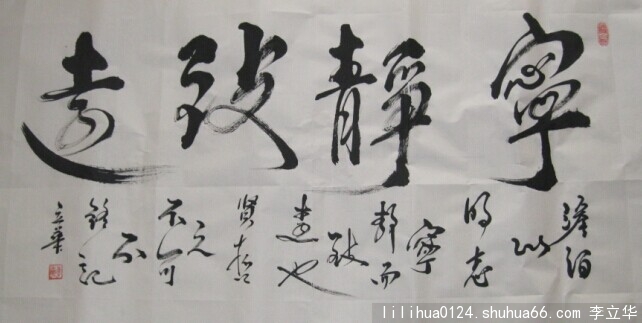 寧靜致遠
澹泊
以
明志
寧
静而
致
遠也
賢哲
不可
不
銘記
立華
lilihua0124.shuhua66.com 李立华